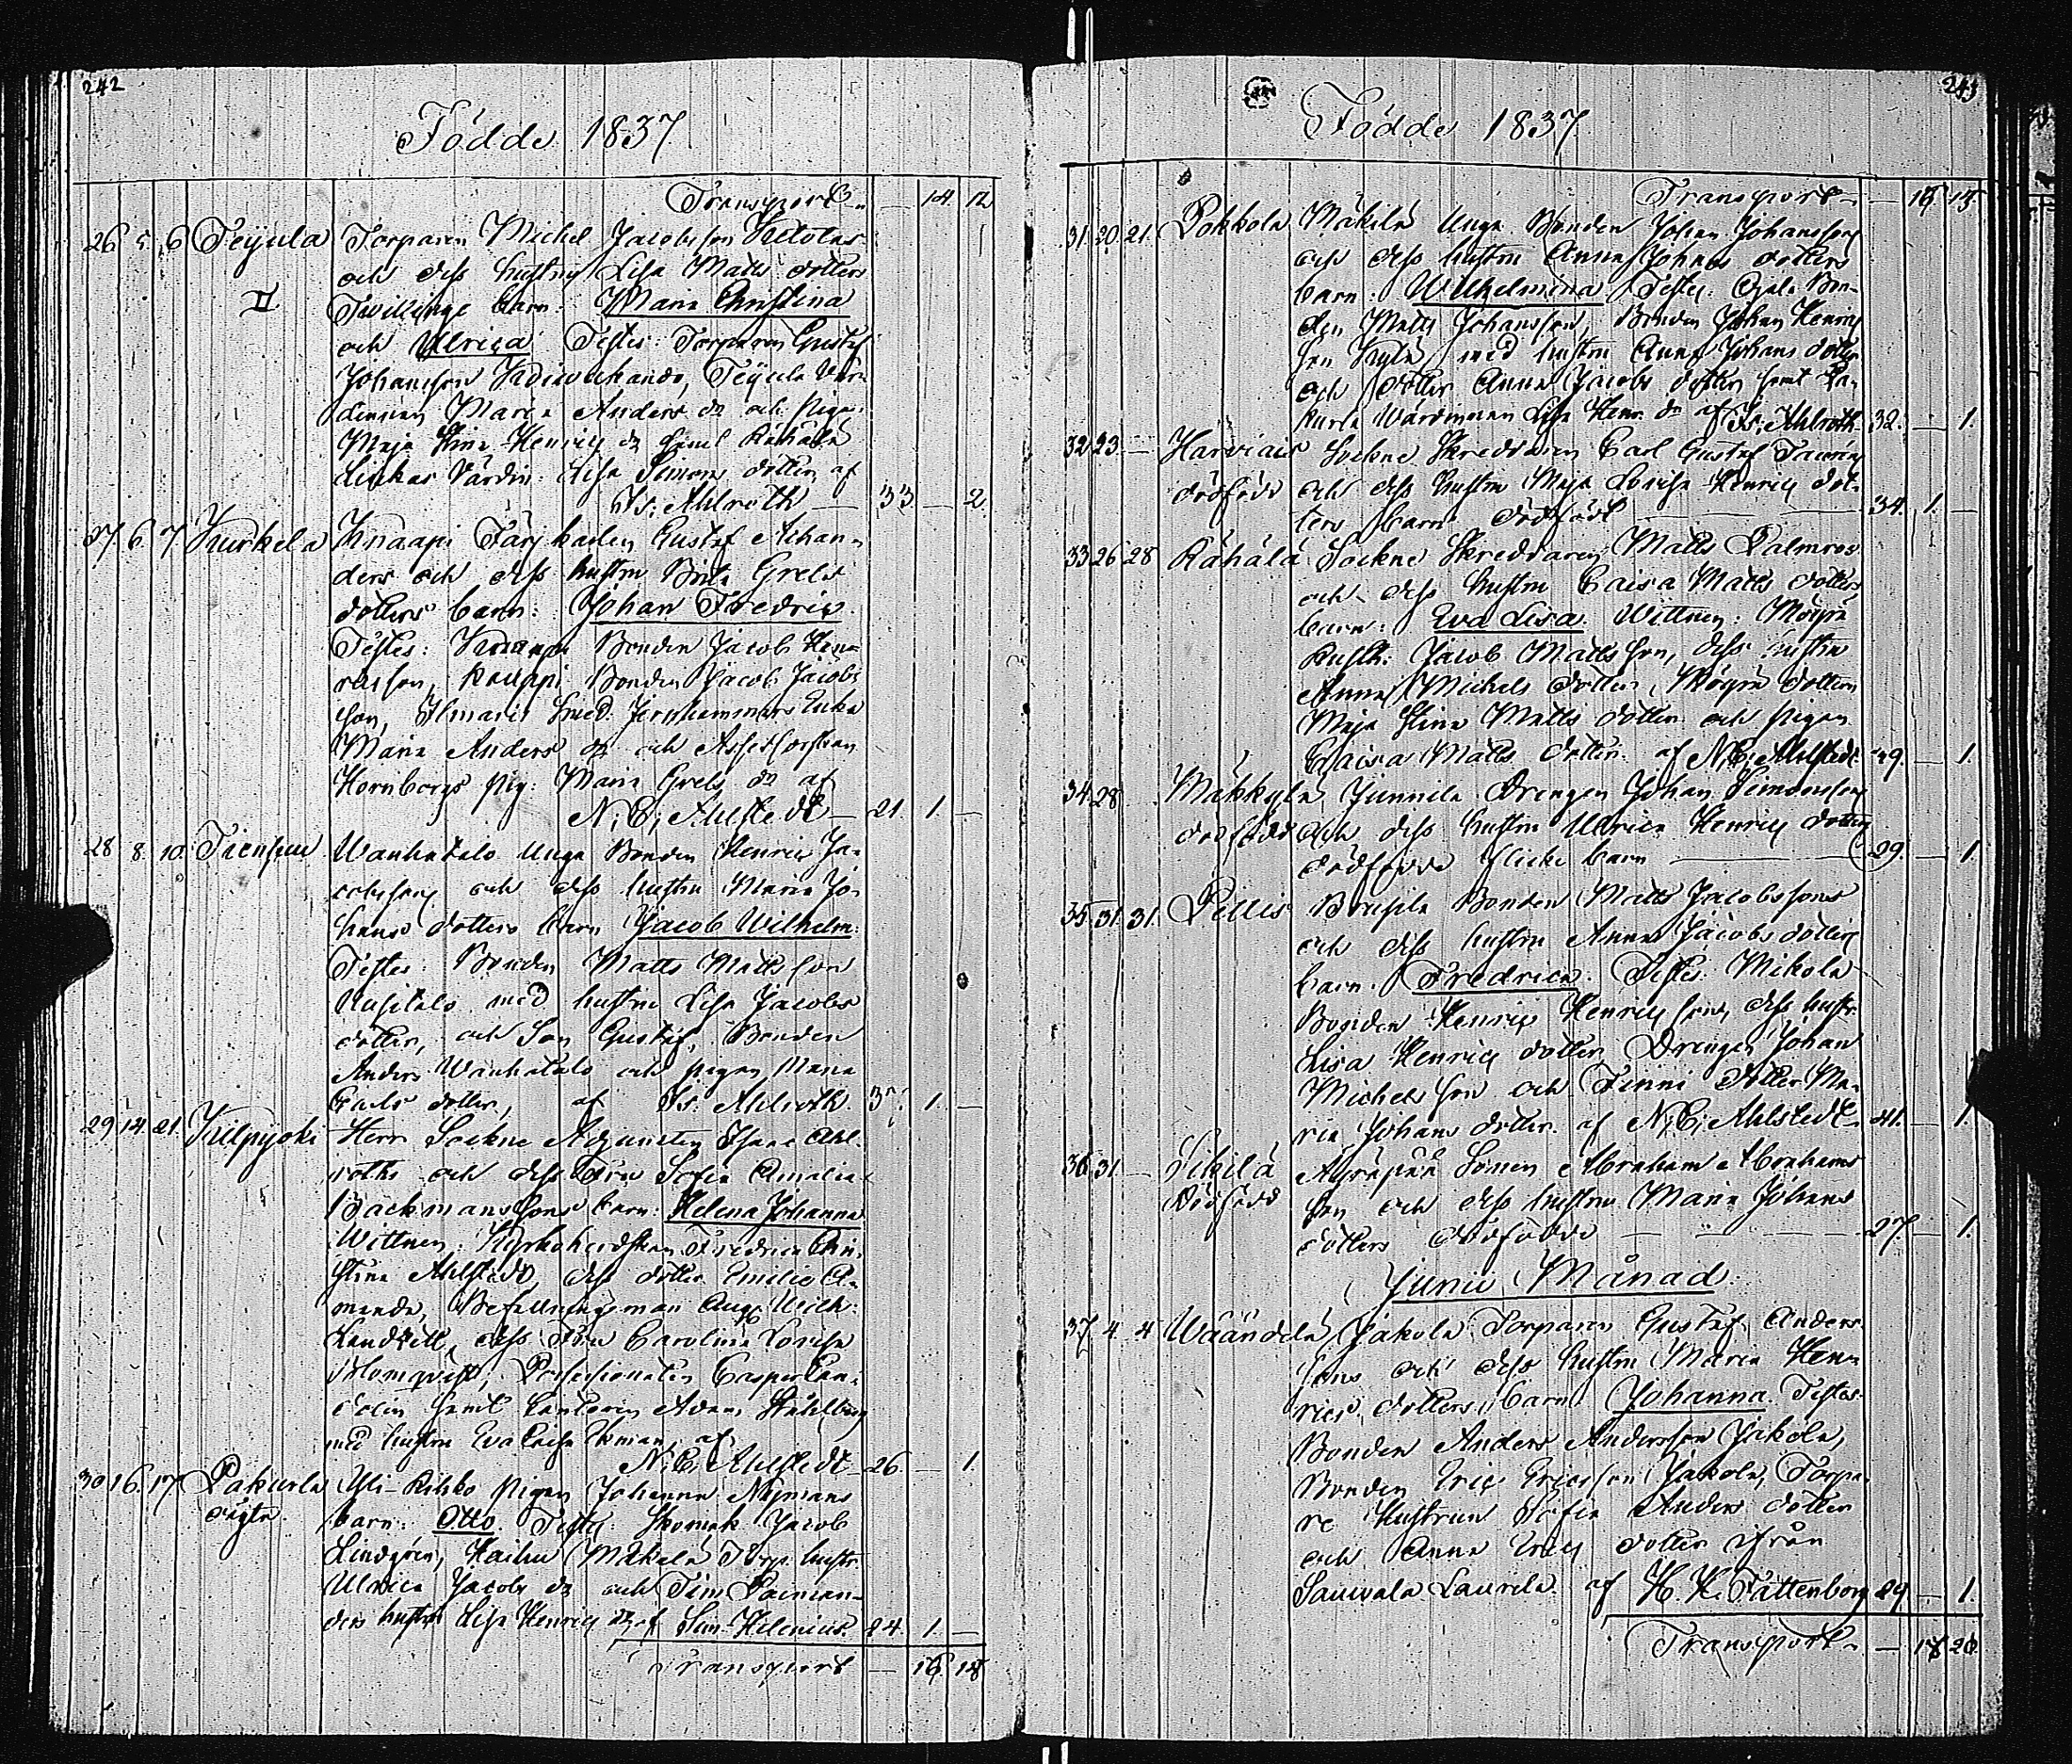 242
Födde 1837
Transport — 14 12
26 5 6 Teijula Torparen Michel Jacobsson
och dess hustru Lisa Matts dotters
II Twillinge barn: Maria Christina
och Ulrica Testes: Torparen Gustaf
Johansson Teijula Vär-
dinnan Maria Anders dr och Pigan
Maja Stina Henrics dr samt Rähälä
Värdin: Lisa Simons dotter af
Is: Ahlroth — 33. — 2.
27 6. 7 Kurkela Knaapi Färjkarlen Gustaf Achan-
ders och dess hustru Brita Grels
dotters barn: Johan Fredric.
Testes: Knaapi Bonden Jacob Hen-
ricsson, Kauppi Bonden Jacob Jacobs
son, Ilmaris Smed Jernhammars Enka
Maria Anders dr och Assessorskan
Hornborgs Pig: Maria Grels dr af
N: C: Ahlstedt — 21. 1. —
28 8. 10. Wanhatalo Unga Bonden Henric Ja-
cobsson och dess hustru Maria Jo-
hans dotters barn Jacob Wilhelm:
Testes: Bonden Matts Mattsson
Uusitalo med hustru Lisa Jacobs
dotter, och Son Gustaf, Bonden
Anders Wanhatalo och pigan Maria
Carls dotter, af Is. Ahlroth. 1. —
29 14. 21. Kilpijoki Herr Sockne Adjuncten Isaac Ahl-
roths och dess Fru Sofia Amalia
Backmanssons barn: Helena Johanna
Wittnen: Kyrkoherdskan Fredrica Chri-
stina Ahlstedt, dess dotter Emilie A-
manda, Befallningsman Aug: Wilh:
dess Fru Carolina Lovisa
Holmqvist, Possessionaten Casper Can-
samt Cantorn Adam Ståhlberg
med hustru Eva Caisa Ekman, af
N: C: Ahlstedt — 26. — 1.
30 16. 17 Pakurla Yli-Rihko Pigan Johanna Nymans
oägta. barn: Otto. Testes: Skomak: Jacob
Lindgren, Kaihu Mäkälä Torp: hustr:
Ulrica Jacobs dr och Tim:
ders hustru Lisa Henrics dr af Sim: Helenius. 24. 1. —
Transport — 16 14
243
Födde 1837
Transport — 15
31. 20. 21. Pokkola Mäkilä Unga Bonden Johan Johansson
och dess hustru Anna Johans dotters
barn: Wilhelmina Testes: Bon-
den Matts Johansson, Bonden Johan Henrics
son Kylä med hustru Anna Johans dotter
och dotter Anna Jacobs dotter samt Pa-
kurla Wärdinnan Lisa Henr: dr af Is: Ahlroth 32. — 1.
32 23. — Harviais Sockne Skreddaren Carl Gustaf
dödfödd och dess hustru Maja Lovisa Henrics dot-
ters barn dödfödt — 34. 1. —
33 26 28 Rähälä Sockne Skreddaren Matts Palmros
och dess hustru Caisa Matts dotters
barn: Eva Lisa. Wittnen:
Rusth: Jacob Matts son, dess hustru
Anna Michels dotter, dotter
Maja Stina Matts dotter och pigan
Caisa Matts dotter. af N: C: Ahlstedt 29. — 1.
34 28 Mäkkylä Junnila Drengen Johan Simonsson
dödfödd och dess hustru Ulrica Henrics dotters
dödfödda flicke barn — 29. — 1.
35 31. 31. Pellis Bonden Matts Jacobssons
och dess hustru Anna Jacobs dotters
barn: Fredrica. Testes: Mikola
Bonden Henric Henricsson, dess hustr:
Lisa Henrics dotter Drengen Johan
Michelsson och Finni dotter Ma-
ria Johans dotter. af N: C: Ahlstedt — 41. — 1.
36 31 — Äyräpää Sonen Abraham Abrahams
Dödfödd son och dess hustru Maria Johans
dotters dödfödde — 27. — 1.
Junii Månad.
37 4 4 Wäändelä Jakola Torparen Gustaf Anders-
sons och dess hustru Maria Hen-
rics dotters barn Johanna. Testes
Bonden Anders Andersson Jakola,
Bonden Eric Ericsson Jakola, Torpa-
re Hustrun Sofia Anders dotter
och Anna Erics dotter ifrån
Sauvala Laurila. af H. K. Fattenborg 29. — 1.
Transport — 18 20